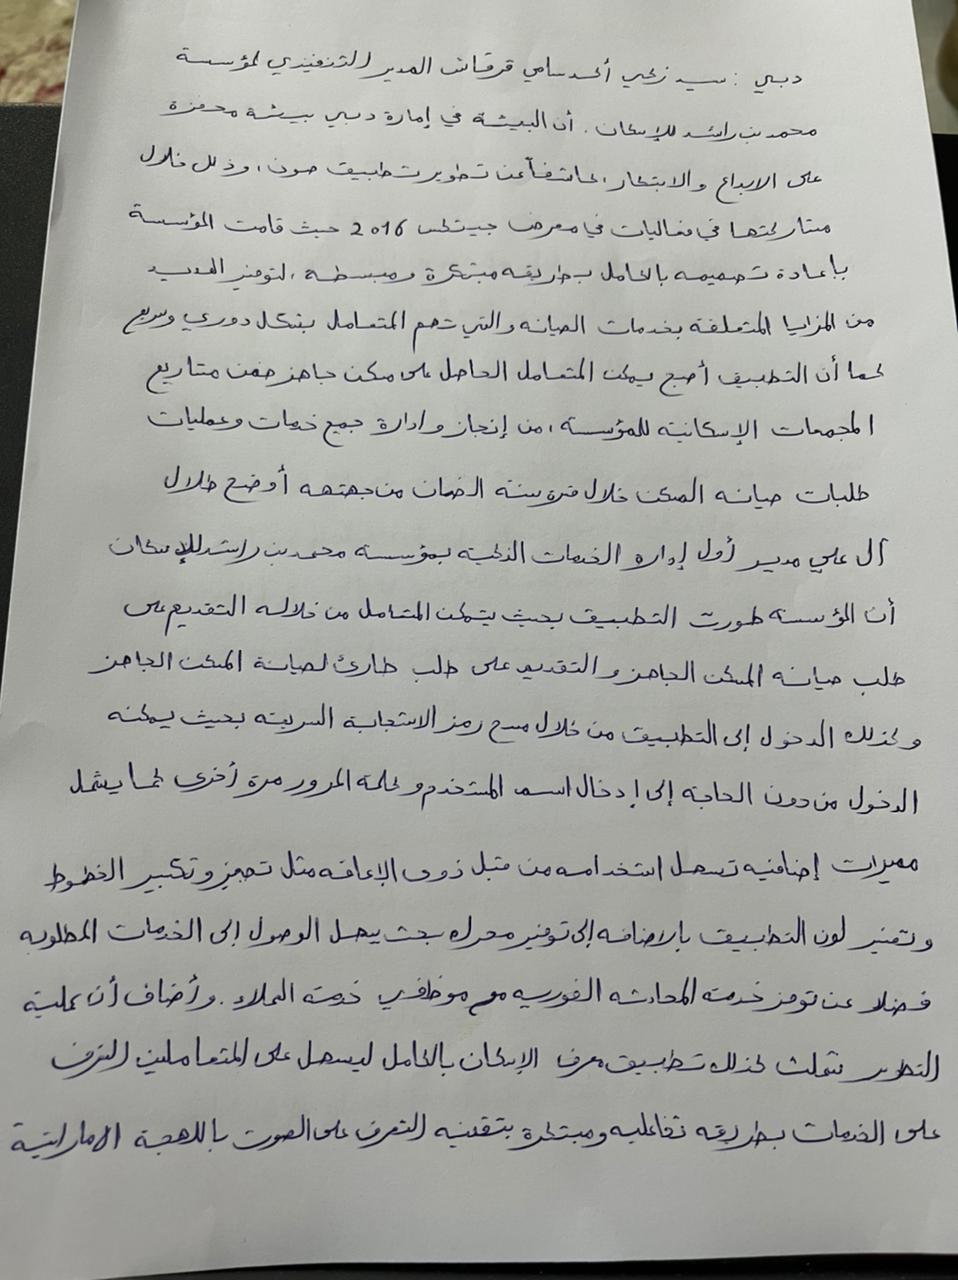 دبي : سيد زكي أحمد سامي قرقاش المدير التنفيذي لمؤسسة
محمد بن راشد للإسكان . أن البيئة في إمارة دبي بيئة محفزة
على الابداع والابتكار ، كاشفاً عن تطوير تطبيق صون ، وذلك خلال
مشاركتها في فعاليات في معرض جيتكس 2016 حيث قامت المؤسسة
بإعادة تصميمه بالكامل بطريقه مبتكرة ومبسطه ، لتوفير العديد
من المزايا المتعلقة بخدمات الصيانه والتي تهم المتعامل بشكل دوري وسريع
كما أن التطبيق أصبح يمكن المتعامل الحاصل على مسكن جاهز ضمن مشاريع
المجمعات الإسكانية للمؤسسة ، من إنجاز وادارة جميع خدمات وعمليات
طلبات صيانه المسكن خلال فترة سنة الضمان من جهته أوضح طلال
آل علي مدير أول إداره الخدمات الذكية بمؤسسة محمد بن راشد للإسكان
أن المؤسسة طورت التطبيق بحيث يتمكن المتعامل من خلاله التقديم على
طلب صيانه المسكن الجاهز والتقديم على طلب طارئ لصيانة المسكن الجاهز
وكذلك الدخول إلى التطبيق من خلال مسح رمز الاستجابة السريعة بحيث يمكنه
الدخول من دون الحاجة إلى إدخال اسم المستخدم وكلمة المرور مرة أخرى كما يشمل
مميزات إضافية تسهل استخدامه من قبل ذوي الإعاقه مثل تصغير وتكبير الخطوط
وتغيير لون التطبيق بالاضافه إلى توفير محرك بحث يسهل الوصول إلى الخدمات المطلوبه
فضلا عن توفر خدمة المحادثه الفوريه مع موظفي خدمة العملاء . وأضاف أن عملية
التطوير شملت كذلك تطبيق صرف الإسكان بالكامل ليسهل على المتعاملين التعرف
على الخدمات بطريقه تفاعليه ومبتكرة بتقنيه التعرف على الصوت باللهجة الاماراتية